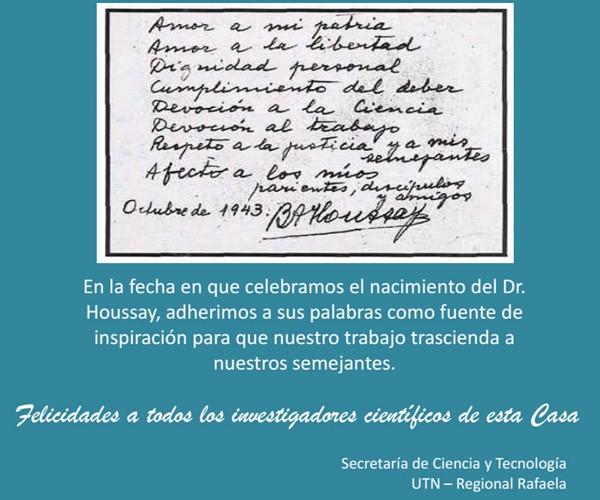 Amor a mi patria
Amor a la libertad
Dignidad personal
Cumplimiento del deber
Devoción a la Ciencia
Devoción al trabajo
Respeto a la justicia y a mis
semejantes
Afecto a los míos
parientes, discípulos
y amigos
Octubre de 1943. BAHoussay
En la fecha en que celebramos el nacimiento del Dr.
Houssay, adherimos a sus palabras como fuente de
inspiración para que nuestro trabajo trascienda a
nuestros semejantes.
Felicidades a todos los investigadores científicos de esta Casa
Secretaría de Ciencia y Tecnología
UTN – Regional Rafaela